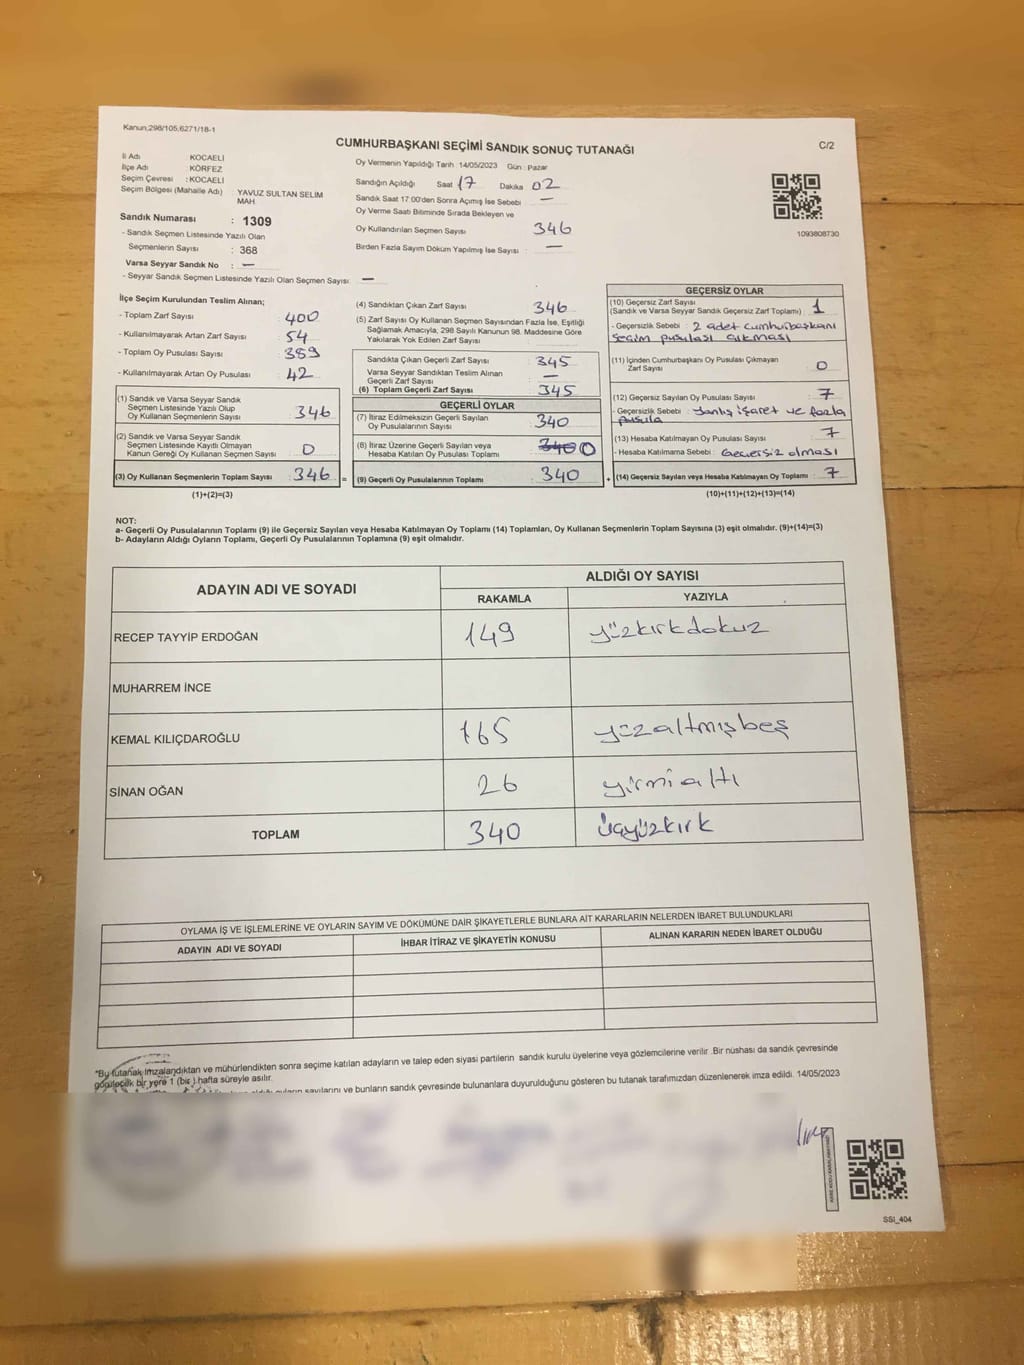 Kanun,298/105;6271/18-1
CUMHURBAŞKANI SEÇİMİ SANDIK SONUÇ TUTANAĞI
C/2
İl Adı KOCAELİ
İlçe Adı KÖRFEZ
Seçim Çevresi : KOCAELİ
Seçim Bölgesi (Mahalle Adı) : YAVUZ SULTAN SELİM MAH.
Sandık Numarası : 1309
- Sandık Seçmen Listesinde Yazılı Olan
Seçmenlerin Sayısı : 368
Varsa Seyyar Sandık No : —
- Seyyar Sandık Seçmen Listesinde Yazılı Olan Seçmen Sayısı : —
Oy Vermenin Yapıldığı Tarih :14/05/2023 Gün : Pazar
Sandığın Açıldığı Saat 17 Dakika 02
Sandık Saat 17.00'den Sonra Açımış İse Sebebi —
Oy Verme Saati Bitiminde Sırada Bekleyen ve
Oy Kullandırılan Seçmen Sayısı 346
Birden Fazla Sayım Döküm Yapılmış İse Sayısı : —
1093808730
İlçe Seçim Kurulundan Teslim Alınan;
- Toplam Zarf Sayısı : 400
- Kullanılmayarak Artan Zarf Sayısı : 54
- Toplam Oy Pusulası Sayısı : 389
- Kullanılmayarak Artan Oy Pusulası : 42
(1) Sandık ve Varsa Seyyar Sandık
Seçmen Listesinde Yazılı Olup
Oy Kullanan Seçmenlerin Sayısı : 346
(2) Sandık ve Varsa Seyyar Sandık
Seçmen Listesinde Kayıtlı Olmayan
Kanun Gereği Oy Kullanan Seçmen Sayısı : 0
(3) Oy Kullanan Seçmenlerin Toplam Sayısı : 346 =
(1)+(2)=(3)
(4) Sandıktan Çıkan Zarf Sayısı 346
(5) Zarf Sayısı Oy Kullanan Seçmen Sayısından Fazla İse, Eşitliği
Sağlamak Amacıyla, 298 Sayılı Kanunun 98. Maddesine Göre
Yakılarak Yok Edilen Zarf Sayısı : —
Sandıkta Çıkan Geçerli Zarf Sayısı : 345
Varsa Seyyar Sandıktan Teslim Alınan
Geçerli Zarf Sayısı : —
(6) Toplam Geçerli Zarf Sayısı : 345
GEÇERLİ OYLAR
(7) İtiraz Edilmeksizin Geçerli Sayılan
Oy Pusulalarının Sayısı : 340
(8) İtiraz Üzerine Geçerli Sayılan veya
Hesaba Katılan Oy Pusulası Toplamı : 340 0
(9) Geçerli Oy Pusulalarının Toplamı : 340 +
GEÇERSİZ OYLAR
(10) Geçersiz Zarf Sayısı
(Sandık ve Varsa Seyyar Sandık Geçersiz Zarf Toplamı) : 1
- Geçersizlik Sebebi : 2 adet cumhurbaşkanı
seçim pusulası çıkması
(11) İçinden Cumhurbaşkanı Oy Pusulası Çıkmayan
Zarf Sayısı : 0
(12) Geçersiz Sayılan Oy Pusulası Sayısı : 7
- Geçersizlik Sebebi : Yanlış işaret ve fazla
pusula
(13) Hesaba Katılmayan Oy Pusulası Sayısı : 7
- Hesaba Katılmama Sebebi : Geçersiz olması
(14) Geçersiz Sayılan veya Hesaba Katılmayan Oy Toplamı : 7
(10)+(11)+(12)+(13)=(14)
NOT:
a- Geçerli Oy Pusulalarının Toplamı (9) ile Geçersiz Sayılan veya Hesaba Katılmayan Oy Toplamı (14) Toplamları, Oy Kullanan Seçmenlerin Toplam Sayısına (3) eşit olmalıdır. (9)+(14)=(3)
b- Adayların Aldığı Oyların Toplamı, Geçerli Oy Pusulalarının Toplamına (9) eşit olmalıdır.
ADAYIN ADI VE SOYADI
ALDIĞI OY SAYISI
RAKAMLA YAZIYLA
RECEP TAYYİP ERDOĞAN 149 yüzkırkdokuz
MUHARREM İNCE
KEMAL KILIÇDAROĞLU 165 yüzaltmışbeş
SİNAN OĞAN 26 yirmialtı
TOPLAM 340 üçyüzkırk
OYLAMA İŞ VE İŞLEMLERİNE VE OYLARIN SAYIM VE DÖKÜMÜNE DAİR ŞİKAYETLERLE BUNLARA AİT KARARLARIN NELERDEN İBARET BULUNDUKLARI
ADAYIN ADI VE SOYADI İHBAR İTİRAZ VE ŞİKAYETİN KONUSU ALINAN KARARIN NEDEN İBARET OLDUĞU
*Bu tutanak imzalandıktan ve mühürlendikten sonra seçime katılan adayların ve talep eden siyasi partilerin sandık kurulu üyelerine veya gözlemcilerine verilir .Bir nüshası da sandık çevresinde
görülecek bir yere 1 (bir ) hafta süreyle asılır.
sayılarını ve bunların sandık çevresinde bulunanlara duyurulduğunu gösteren bu tutanak tarafımızdan düzenlenerek imza edildi. 14/05/2023
SSİ_404